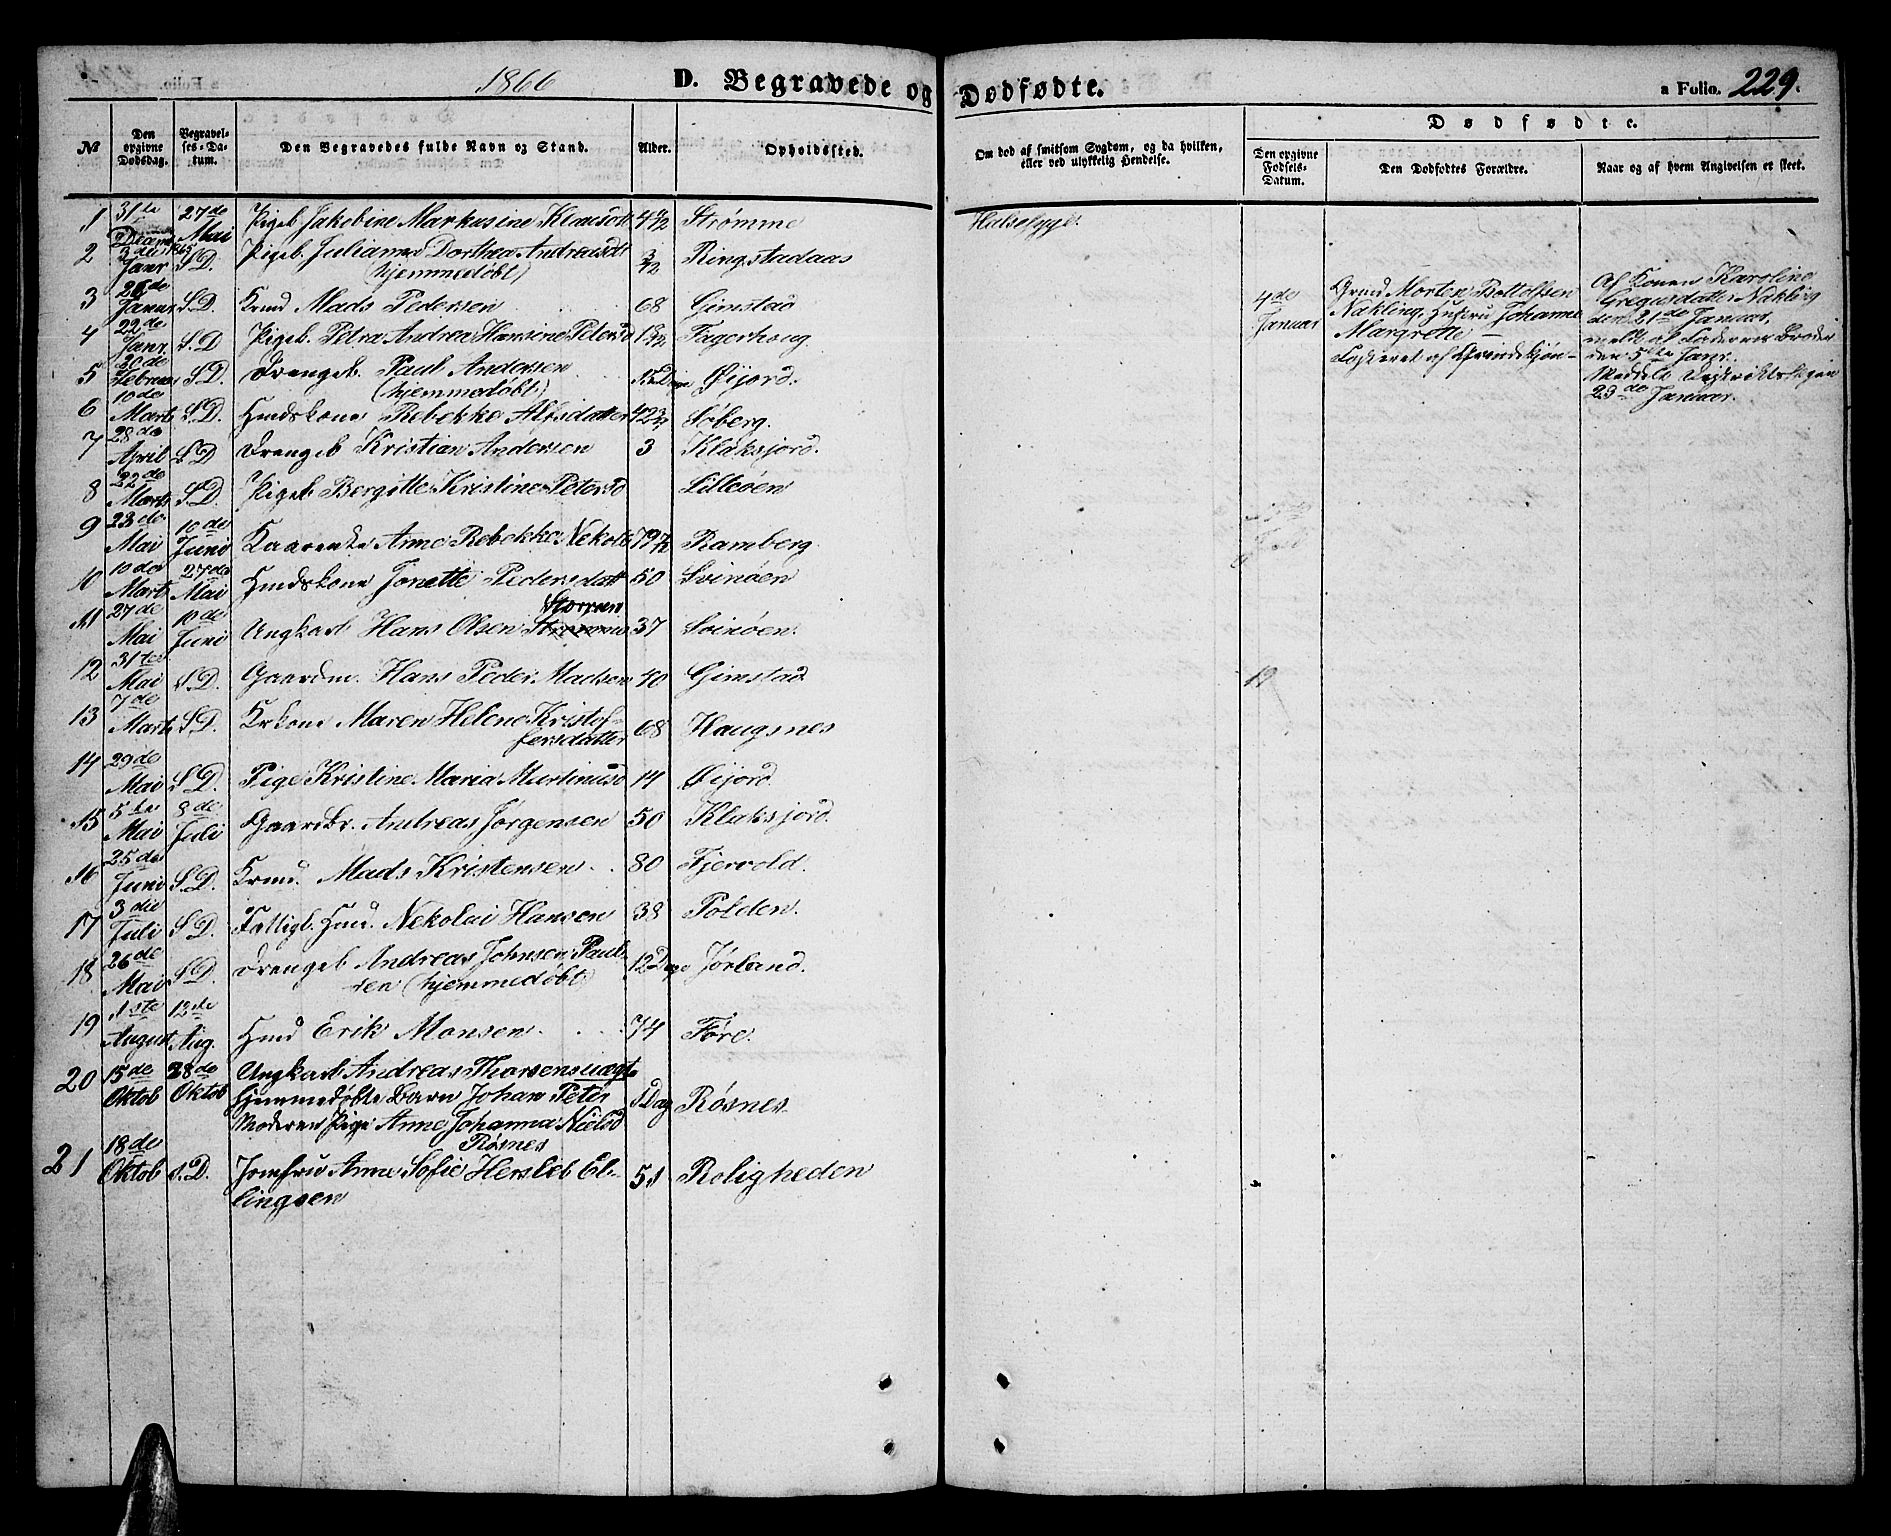 1866 D. Begravede og Dødfødte. a Folio. 229.
№ Den opgivne Dødsdag. Begravelses-Datum. Den Begravedes fulde Navn og Stand. Alder. Opholdssted. Om død af smitsom Sygdom, og da hvilken, eller ved ulykkelig Hendelse.
Dødfødte.
Den opgivne Fødsels-Datum. Den Dødfødtes Forældre. Naar og af hvem Angivelsen er skeet.
1 31te Decemb 27de Mai Pigeb. Jakobine Markusine Klausdt 4 Strømme Halsesyge
2 3die Janr S.D. Pigeb. Julianna Dorthea Andreasdt (hjemmedøbt) Ringstadaas
3 26de Januar S.D. Krmd Mads Pedersen 68 Gimstad
4 22de Janr S.D Pigeb. Petra Andrea Hansine Petersd Fagerhoug
5 20de Februar S.D. Drengeb. Paul Andersen (hjemmedøbt) Dage Øijord.
6 10de Marts S.D. Hmdskone Rebekke Alfsdatter 42 Søberg.
7 28de April S.D Drengeb Kristian Andersen 3 Klaksjord.
8 22de Marts S.D Pigeb Bergitte Kristine Petersd Lilleøen
9 23de Mai 10de Juni Kaarenke Anne Rebekka Nekolsd 79 Ramberg.
10 10de Marts 27de Mai Hmdskone Jonette Pedersdatt 50 Svinøen
11 27de Mai 10de Juni Ungkarl Hans Olsen 37 Svinøen.
12 31te Mai S.D. Gaardm. Hans Peder Madsen 40 Gimstad
13 7de Marts S.D Krkone Maren Helene Kristoffersdatter 68 Haugsnes
14 29de Mai S.D. Pige Kristine Maria Martinusd 14 Øijord.
15 5te Mai 8de Juli Gaardbr. Andreas Jørgensen 50 Klaksjord
16 25de Juni S.D. Krmd. Mads Kristensen 80 Fjervold.
17 3die Juli S.D. Fattigl. Hmd. Nekolai Hansen 38 Polden.
18 26de Mai S.D Drengeb Andreas Johnsen Paulsen (hjemmedøbt) 12 Dage Jørland.
19 1ste August 12te Aug. Hmd Erik Monsen 74 Føre.
20 15de Oktob 28de Oktob Ungkarl Andreas Thorsens uægte
hjemmedøbte Barn Johan Peter 1 Dag Røsnes
Moderen Pige Anne Johanna Nielsd
Røsnes
21 18de Oktob S.D. Jomfru Anne Sofie Hersleb Ellingsen 51 Roligheden
4de Januar Grmd Morten Bottolfsen
Nakling, Hustru Johanna
Margrette
Af Konen Karoline
Gregusdatter Nakling
den 21de Januar,
meldt af Faderens Broder
den 5te Janr.
23de Januar.
19